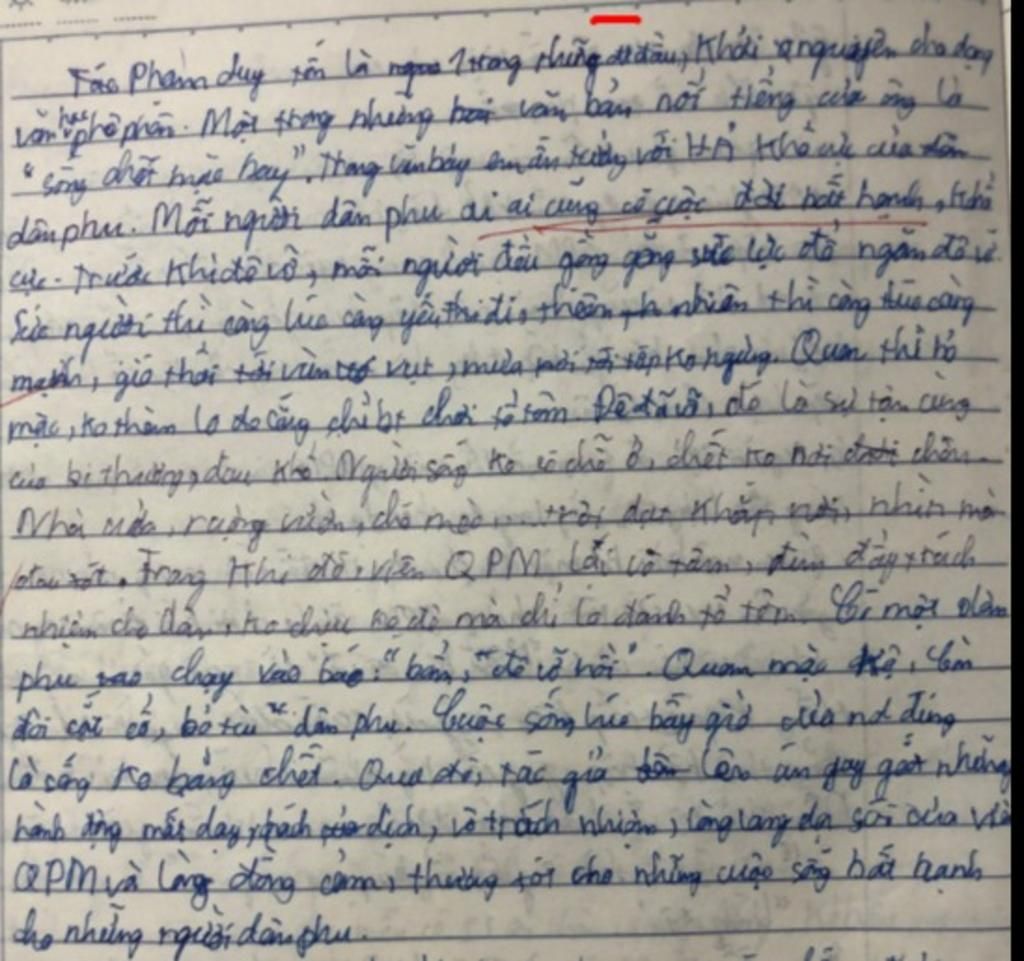 Phạm duy tốn là 1 trong những đầu, khởi nguyên cho dạng
văn học phê phán. Một trong những văn bản nổi tiếng của ông là
"sống chết mặc bay". Trong văn bảy em ấn tượng với HẢ khổ cực của
dân phu. Mỗi người dân phu ai ai cũng có cuộc đời bất hạnh, khổ
cực. Trước khi đê vỡ, mỗi người đều gồng gắng sức lực để ngăn đê vỡ.
Sức người thì càng lúc càng yếu đi, thiên nhiên thì càng lúc càng
mạnh, gió thổi vùn vụt, mưa ko ngừng. Quan thì bỏ
mặc, ko thèm lo chỉ bt chơi tổ tôm. Đê đã vỡ, đó là sự tận cùng
của bi thương, đau khổ. Người sống ko có chỗ ở, chết ko nơi chôn.
Nhà cửa, ruộng vườn, chó mèo,... trôi dạt khắp nơi, nhìn mà
đau xót. Trong khi đó, viên QPM lại vô tâm, đùn đẩy trách
nhiệm cho dân, ko chịu mà chỉ lo đánh tổ tôm. Có một dân
phu chạy vào báo: "bẩm", "đê vỡ rồi". Quan mặc kệ, còn
đòi cắt cổ, bỏ tù dân phu. Cuộc sống lúc bấy giờ của nd đúng
là sống ko bằng chết. Qua đó, tác giả lên án gay gắt những
hành động mất dạy, dịch, vô trách nhiệm, lòng lang dạ sói của viên
QPM và lòng đồng cảm, thương xót cho những cuộc sống bất hạnh
cho những người dân phu.